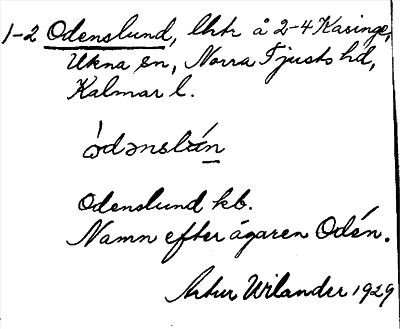 1-2 Odenslund, lht å 2-4 Kasinge,
Ukna sn, Norra Tjusts hd,
Kalmar l.
ódənslún
Odenslund kb.
Namn efter ägaren Odén.
Artur Wilander 1929